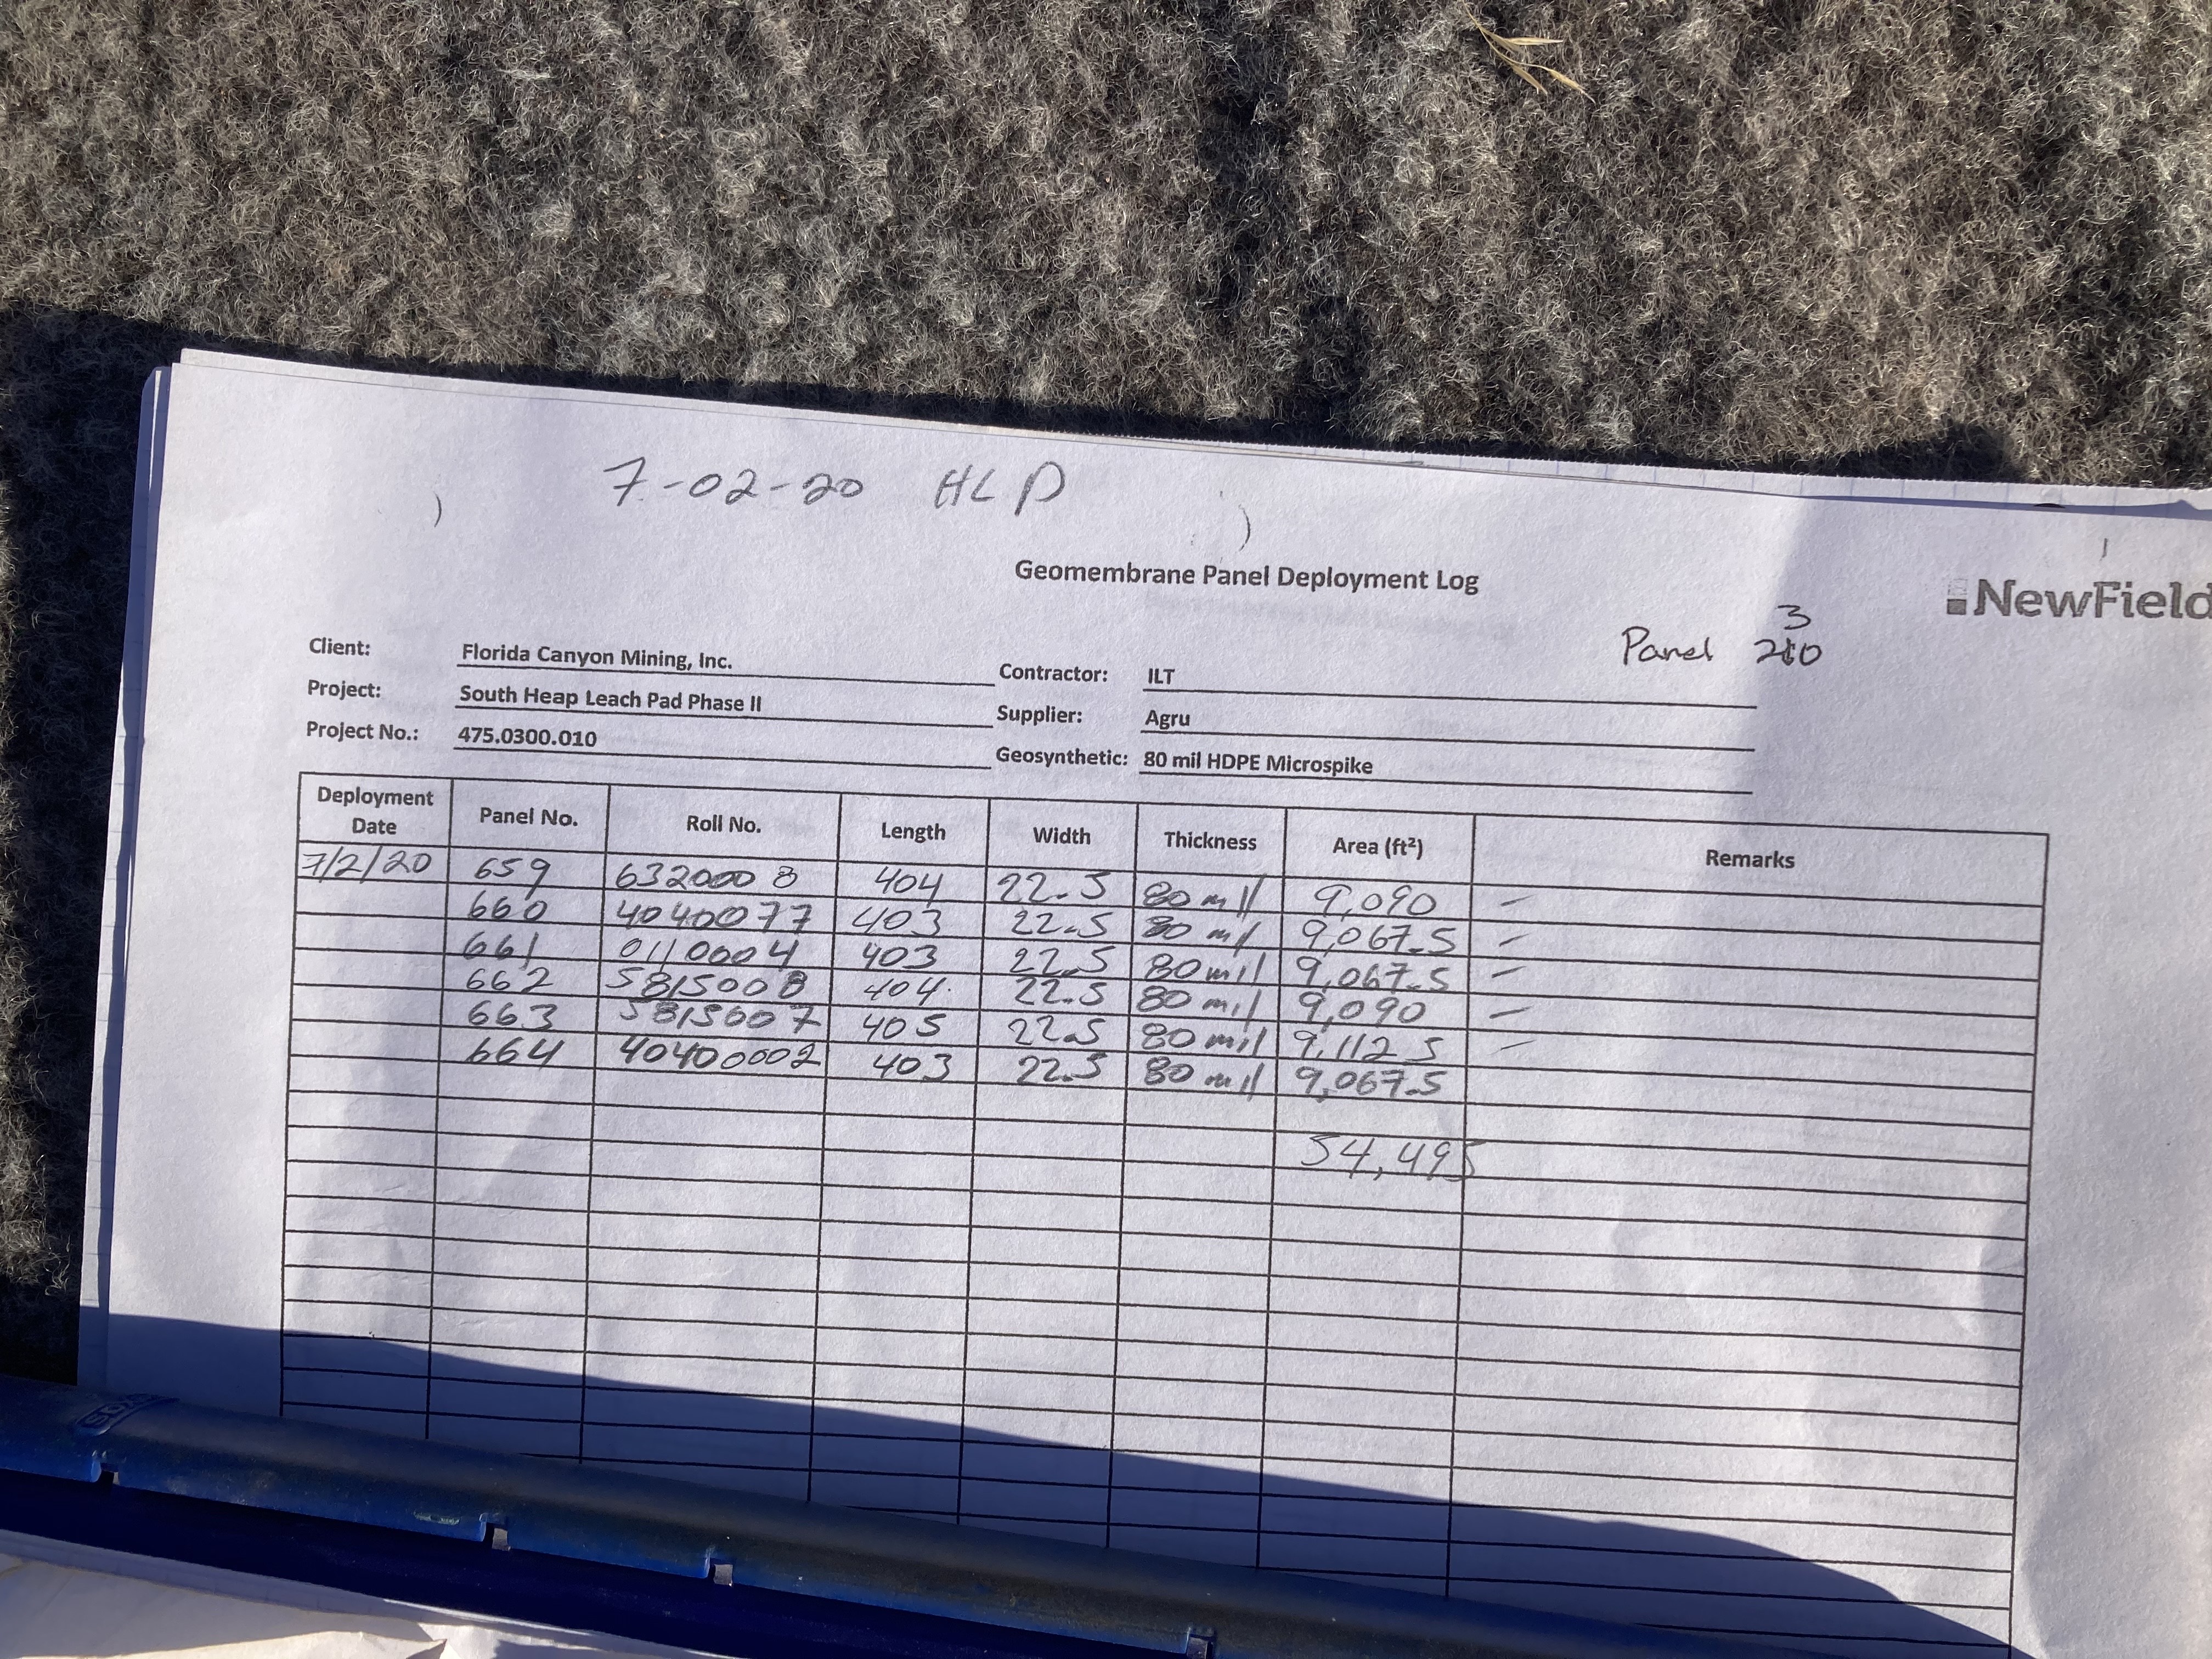 7-02-20 HLP
Geomembrane Panel Deployment Log
NewField
3
Panel 210
Client: Florida Canyon Mining, Inc. Contractor: ILT
Project: South Heap Leach Pad Phase II Supplier: Agru
Project No.: 475.0300.010 Geosynthetic: 80 mil HDPE Microspike
Deployment Date Panel No. Roll No. Length Width Thickness Area (ft²) Remarks
7/2/20 659 6320008 404 22.5 80 mil 9,090 -
660 4040077 403 22.5 80 mil 9,067.5 -
661 0110004 403 22.5 80 mil 9,067.5 -
662 5815008 404 22.5 80 mil 9,090 -
663 5815007 405 22.5 80 mil 9,112.5 -
664 40400002 403 22.5 80 mil 9,067.5
54,495